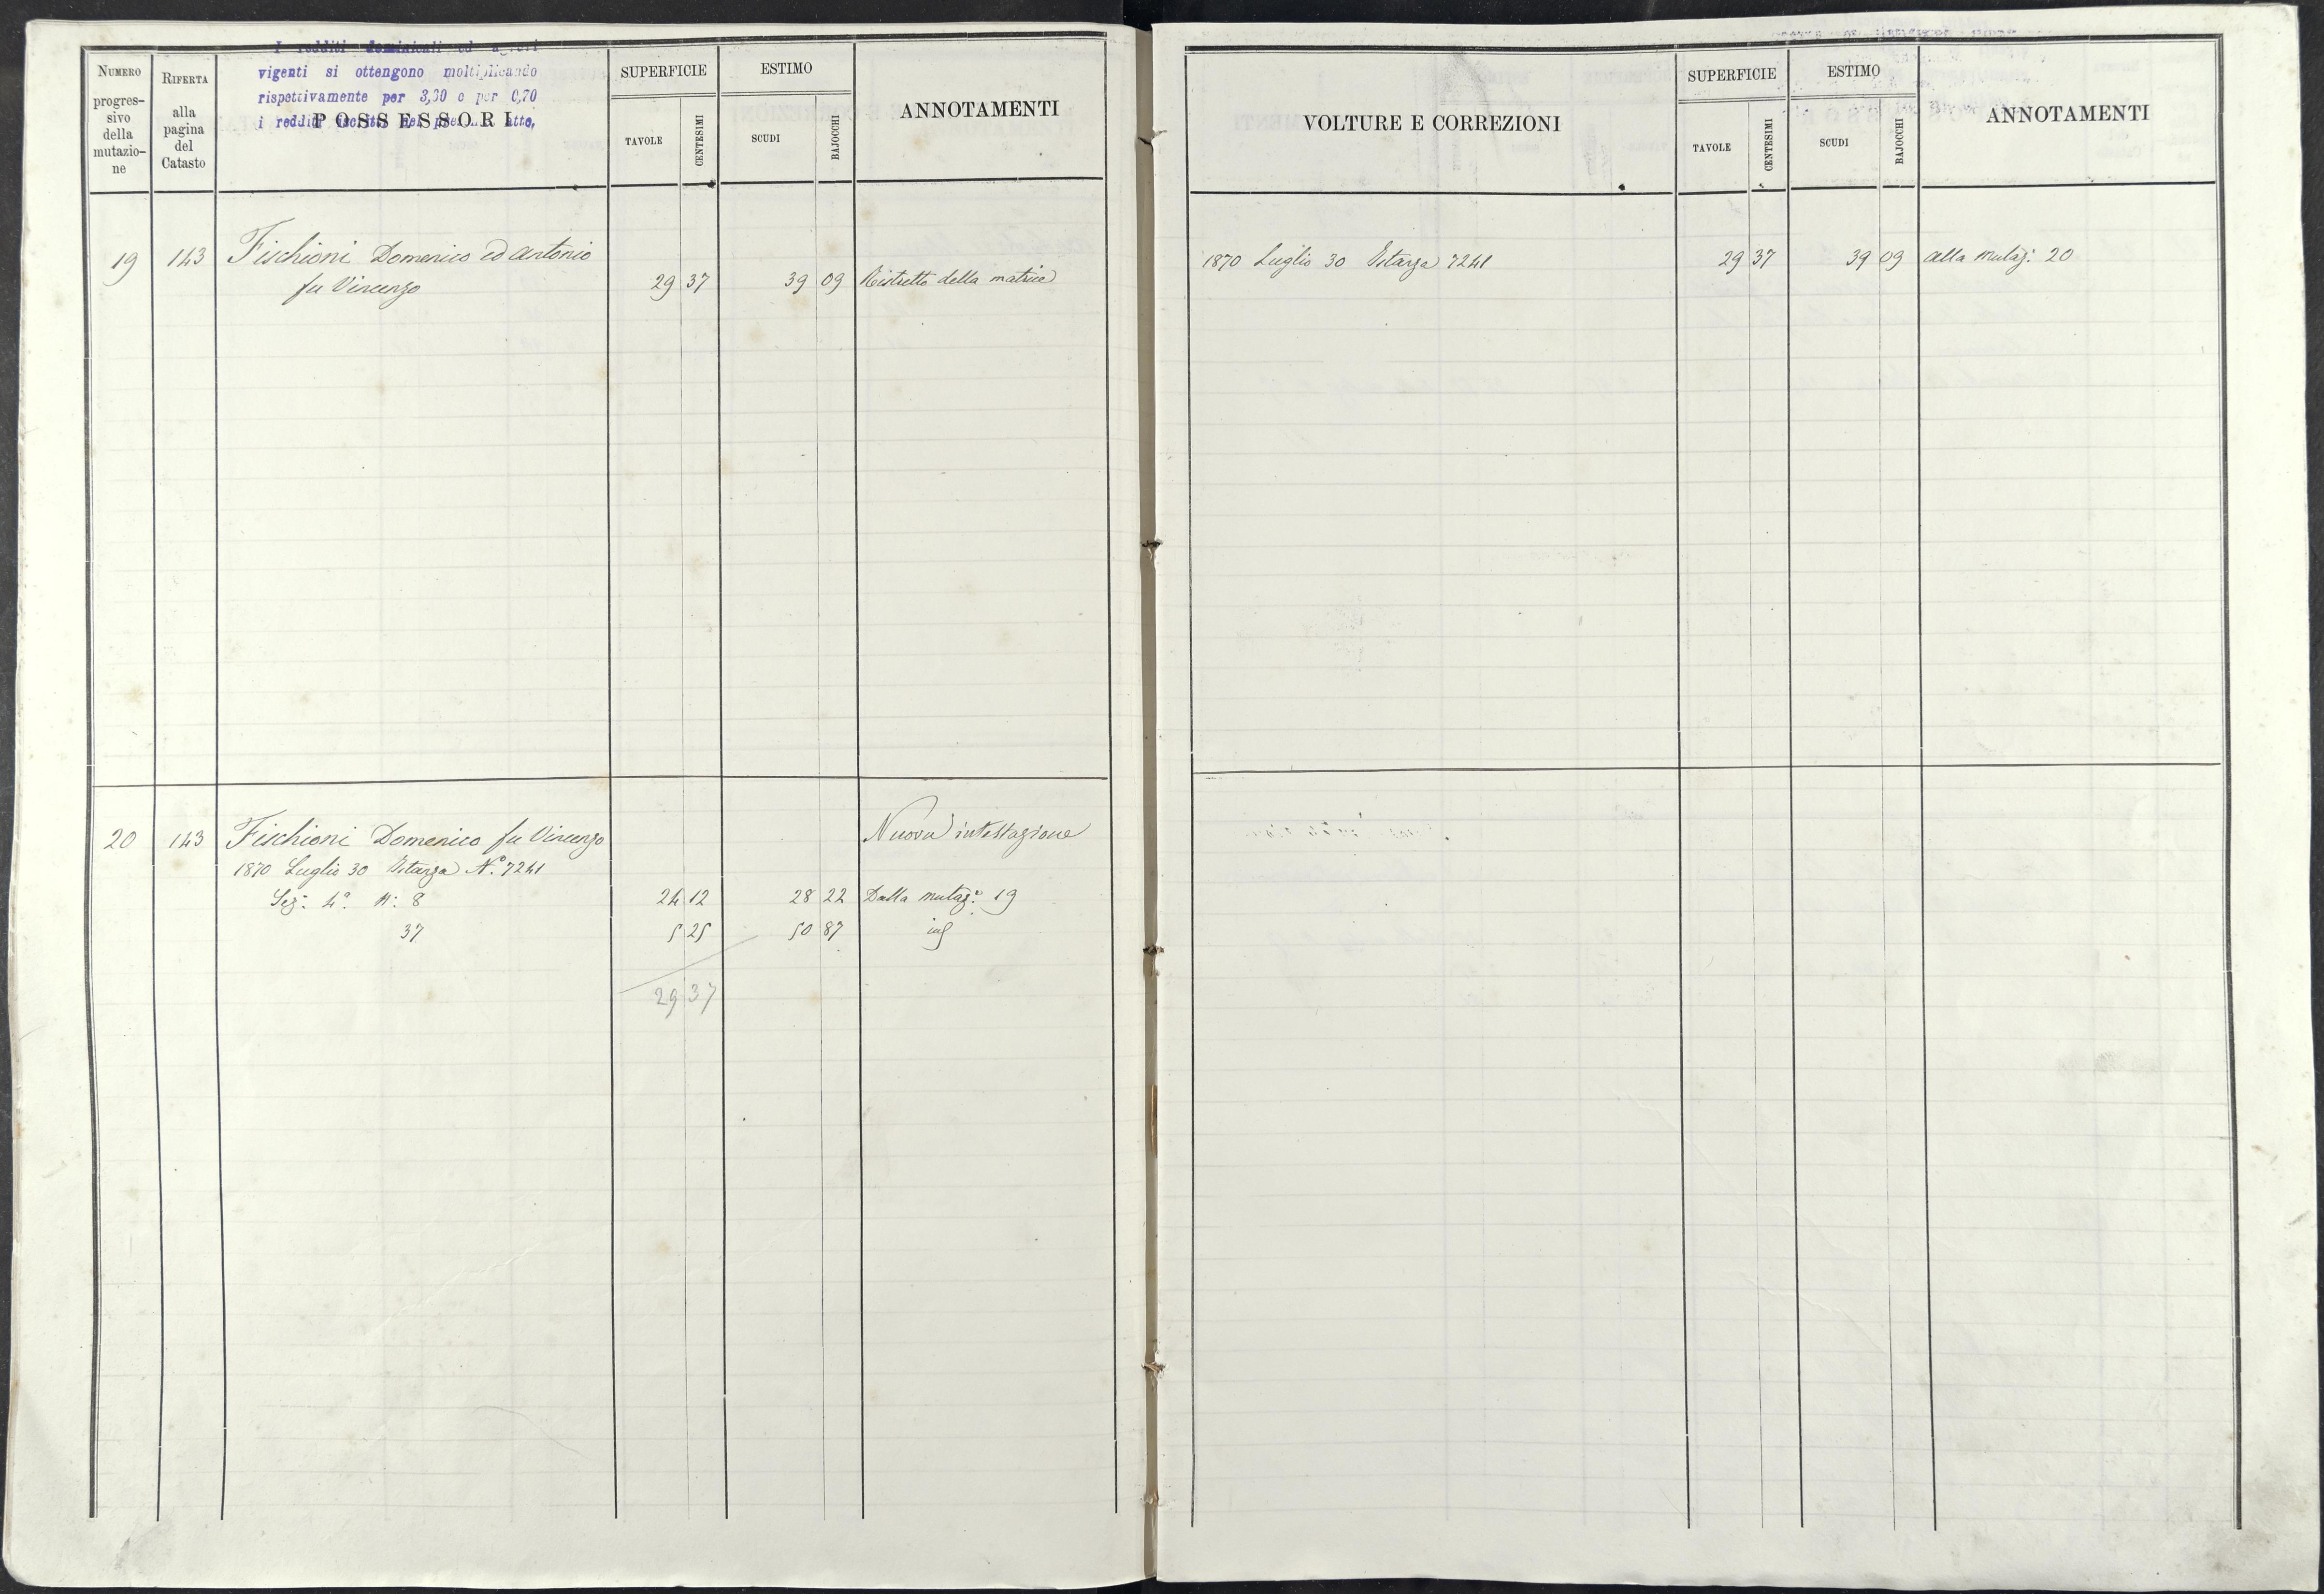 I redditi dominicali ed agrari
vigenti si ottengono moltiplicando
rispettivamente per 3,30 e per 0,70
i redditi iscritti nel presente atto.
NUMERO progres- sivo della mutazio- ne
RIFERTA alla pagina del Catasto
POSSESSORI
SUPERFICIE
TAVOLE CENTESIMI
ESTIMO
SCUDI BAJOCCHI
ANNOTAMENTI
19 143 Fischioni Domenico ed Antonio
fu Vincenzo 29 37 39 09 Ristretto della matrice
20 143 Fischioni Domenico fu Vincenzo Nuova intestazione
1870 Luglio 30 Istanza N.° 7241
Sez: 4ª N: 8 24 12 28 22 Dalla mutaz: 19
37 5 25 50 87
29 37
VOLTURE E CORREZIONI
SUPERFICIE
TAVOLE CENTESIMI
ESTIMO
SCUDI BAJOCCHI
ANNOTAMENTI
1870 Luglio 30 Istanza 7241 29 37 39 09 alla mutaz: 20